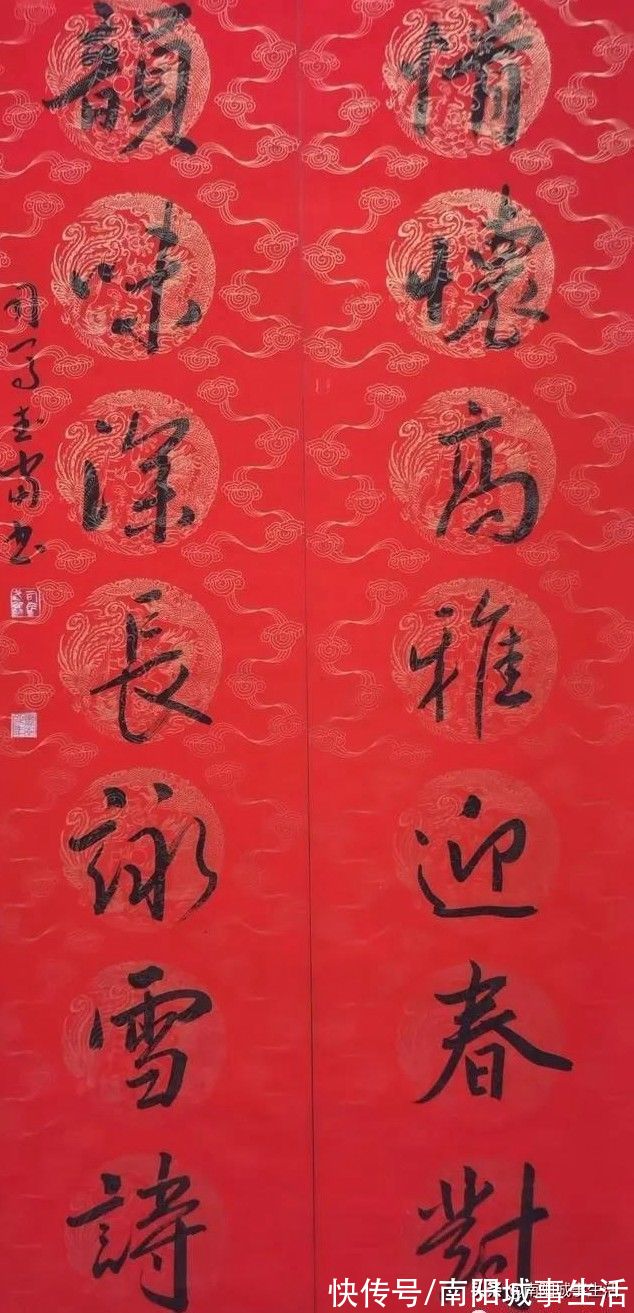 情懷高雅迎春對
韻味深長詠雪詩
快传号/南阳城事生活